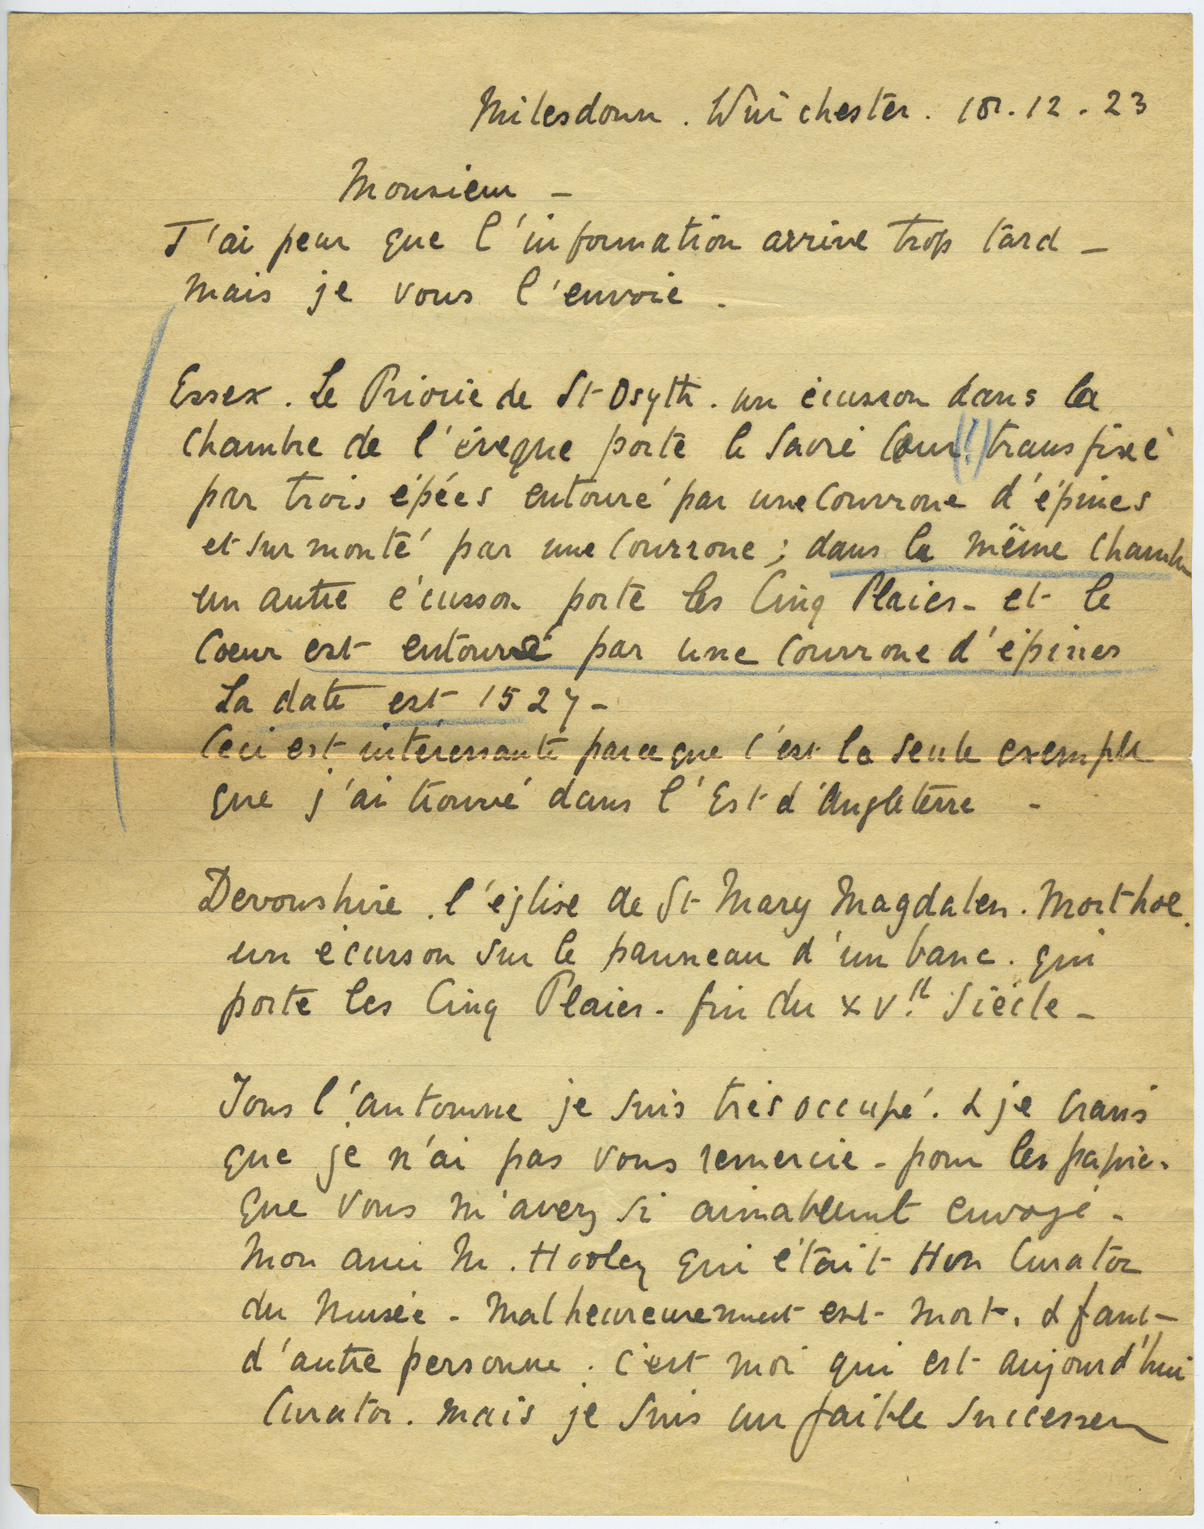 Milesdown. Winchester. 18.12.23
Monsieur —
J'ai peur que l'information arrive trop tard —
Mais je vous l'envoie.
Essex. Le Prioríe de St Osyth. un écusson dans la
chambre de l'évêque porte le Sacré Cœur (!) transfixé
par trois épées entouré par une couronne d'épines
et surmonté par une couronne; dans la même chambre
un autre écusson porte les Cinq Plaies - et le
Coeur est entouré par une couronne d'épines
La date est 1527 -
Ceci est intéressante parce que c'est la seule exemple
que j'ai trouvé dans l'Est d'Angleterre -
Devonshire. l'église de St Mary Magdalen. Morthoe.
un écusson sur le panneau d'un banc. qui
porte les Cinq Plaies. fin du XV.th Siècle -
Tous l'automne je suis très occupé. & je crains
que je n'ai pas vous remercie - pour les papie.
que vous m'avez si aimablement envoyé -
Mon ami M. Hooley qui était Hon Curator
du Musée - Malheureusement est mort. & faut
d'autre personne. c'est moi qui est aujourd'hui
Curator. mais je suis un faible successeur